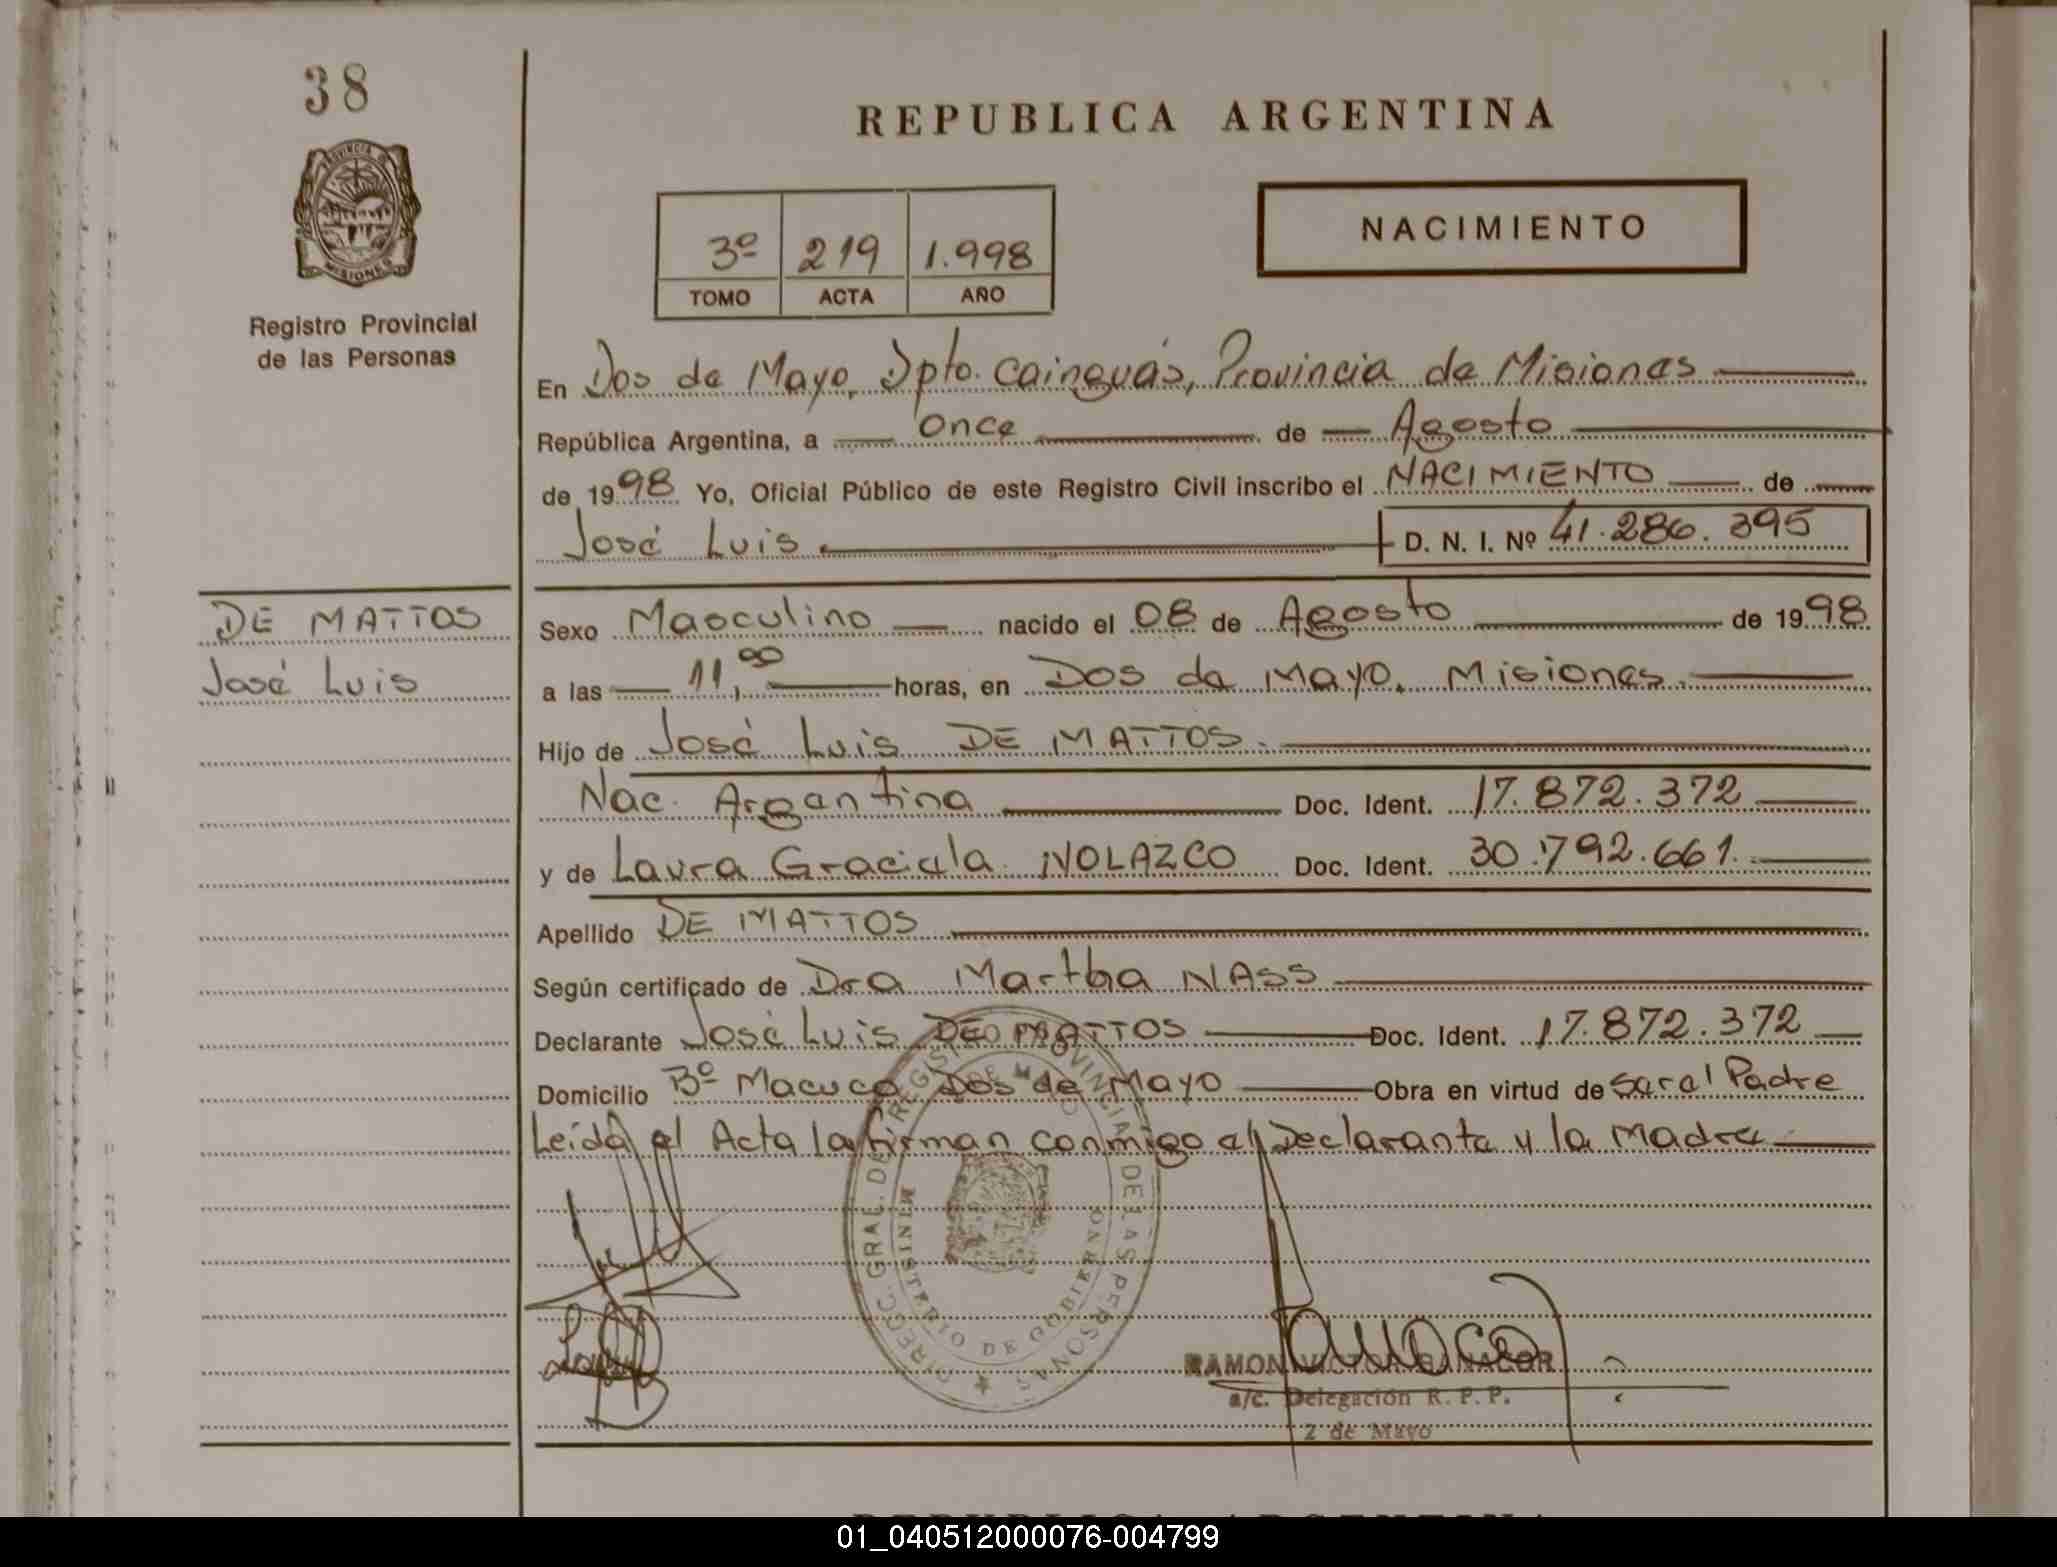 38
PROVINCIA DE
MISIONES
Registro Provincial
de las Personas
DE MATTOS
José Luis
REPUBLICA ARGENTINA
3º 219 1.998
TOMO ACTA AÑO
NACIMIENTO
En Dos de Mayo, Dpto. Cainguás, Provincia de Misiones
República Argentina, a once de Agosto
de 1998 Yo, Oficial Público de este Registro Civil inscribo el NACIMIENTO de
José Luis D. N. I. Nº 41.286.395
Sexo Masculino nacido el 08 de Agosto de 1998
a las 11,00 horas, en Dos de Mayo. Misiones.
Hijo de José Luis DE MATTOS.
Nac. Argentina Doc. Ident. 17.872.372
y de Laura Graciela NOLAZCO Doc. Ident. 30.792.661.
Apellido DE MATTOS
Según certificado de Dra Martha NASS
Declarante José Luis DE MATTOS Doc. Ident. 17.872.372
Domicilio Bº Macuco Dos de Mayo Obra en virtud de ser el Padre
Leída el Acta la firman conmigo el Declarante y la Madre
DIRECC. GRAL. DEL REGISTRO PROVINCIAL DE LAS PERSONAS
MINISTERIO DE GOBIERNO
RAMON VICTOR
a/c. Delegación R. P. P.
2 de Mayo
REPUBLICA ARGENTINA
01_040512000076-004799